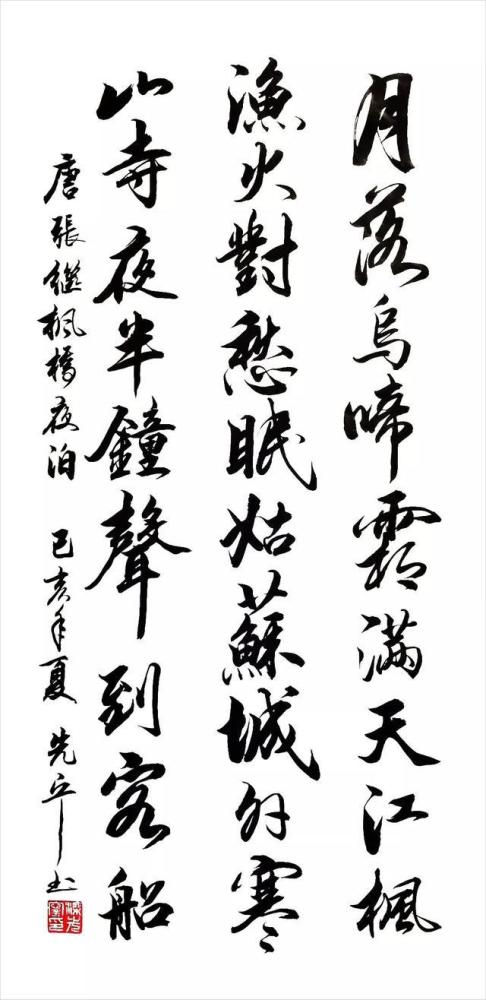 月落烏啼霜滿天江楓
漁火對愁眠姑蘇城外寒
山寺夜半鐘聲到客船
唐張繼楓橋夜泊 己亥年夏 先 书